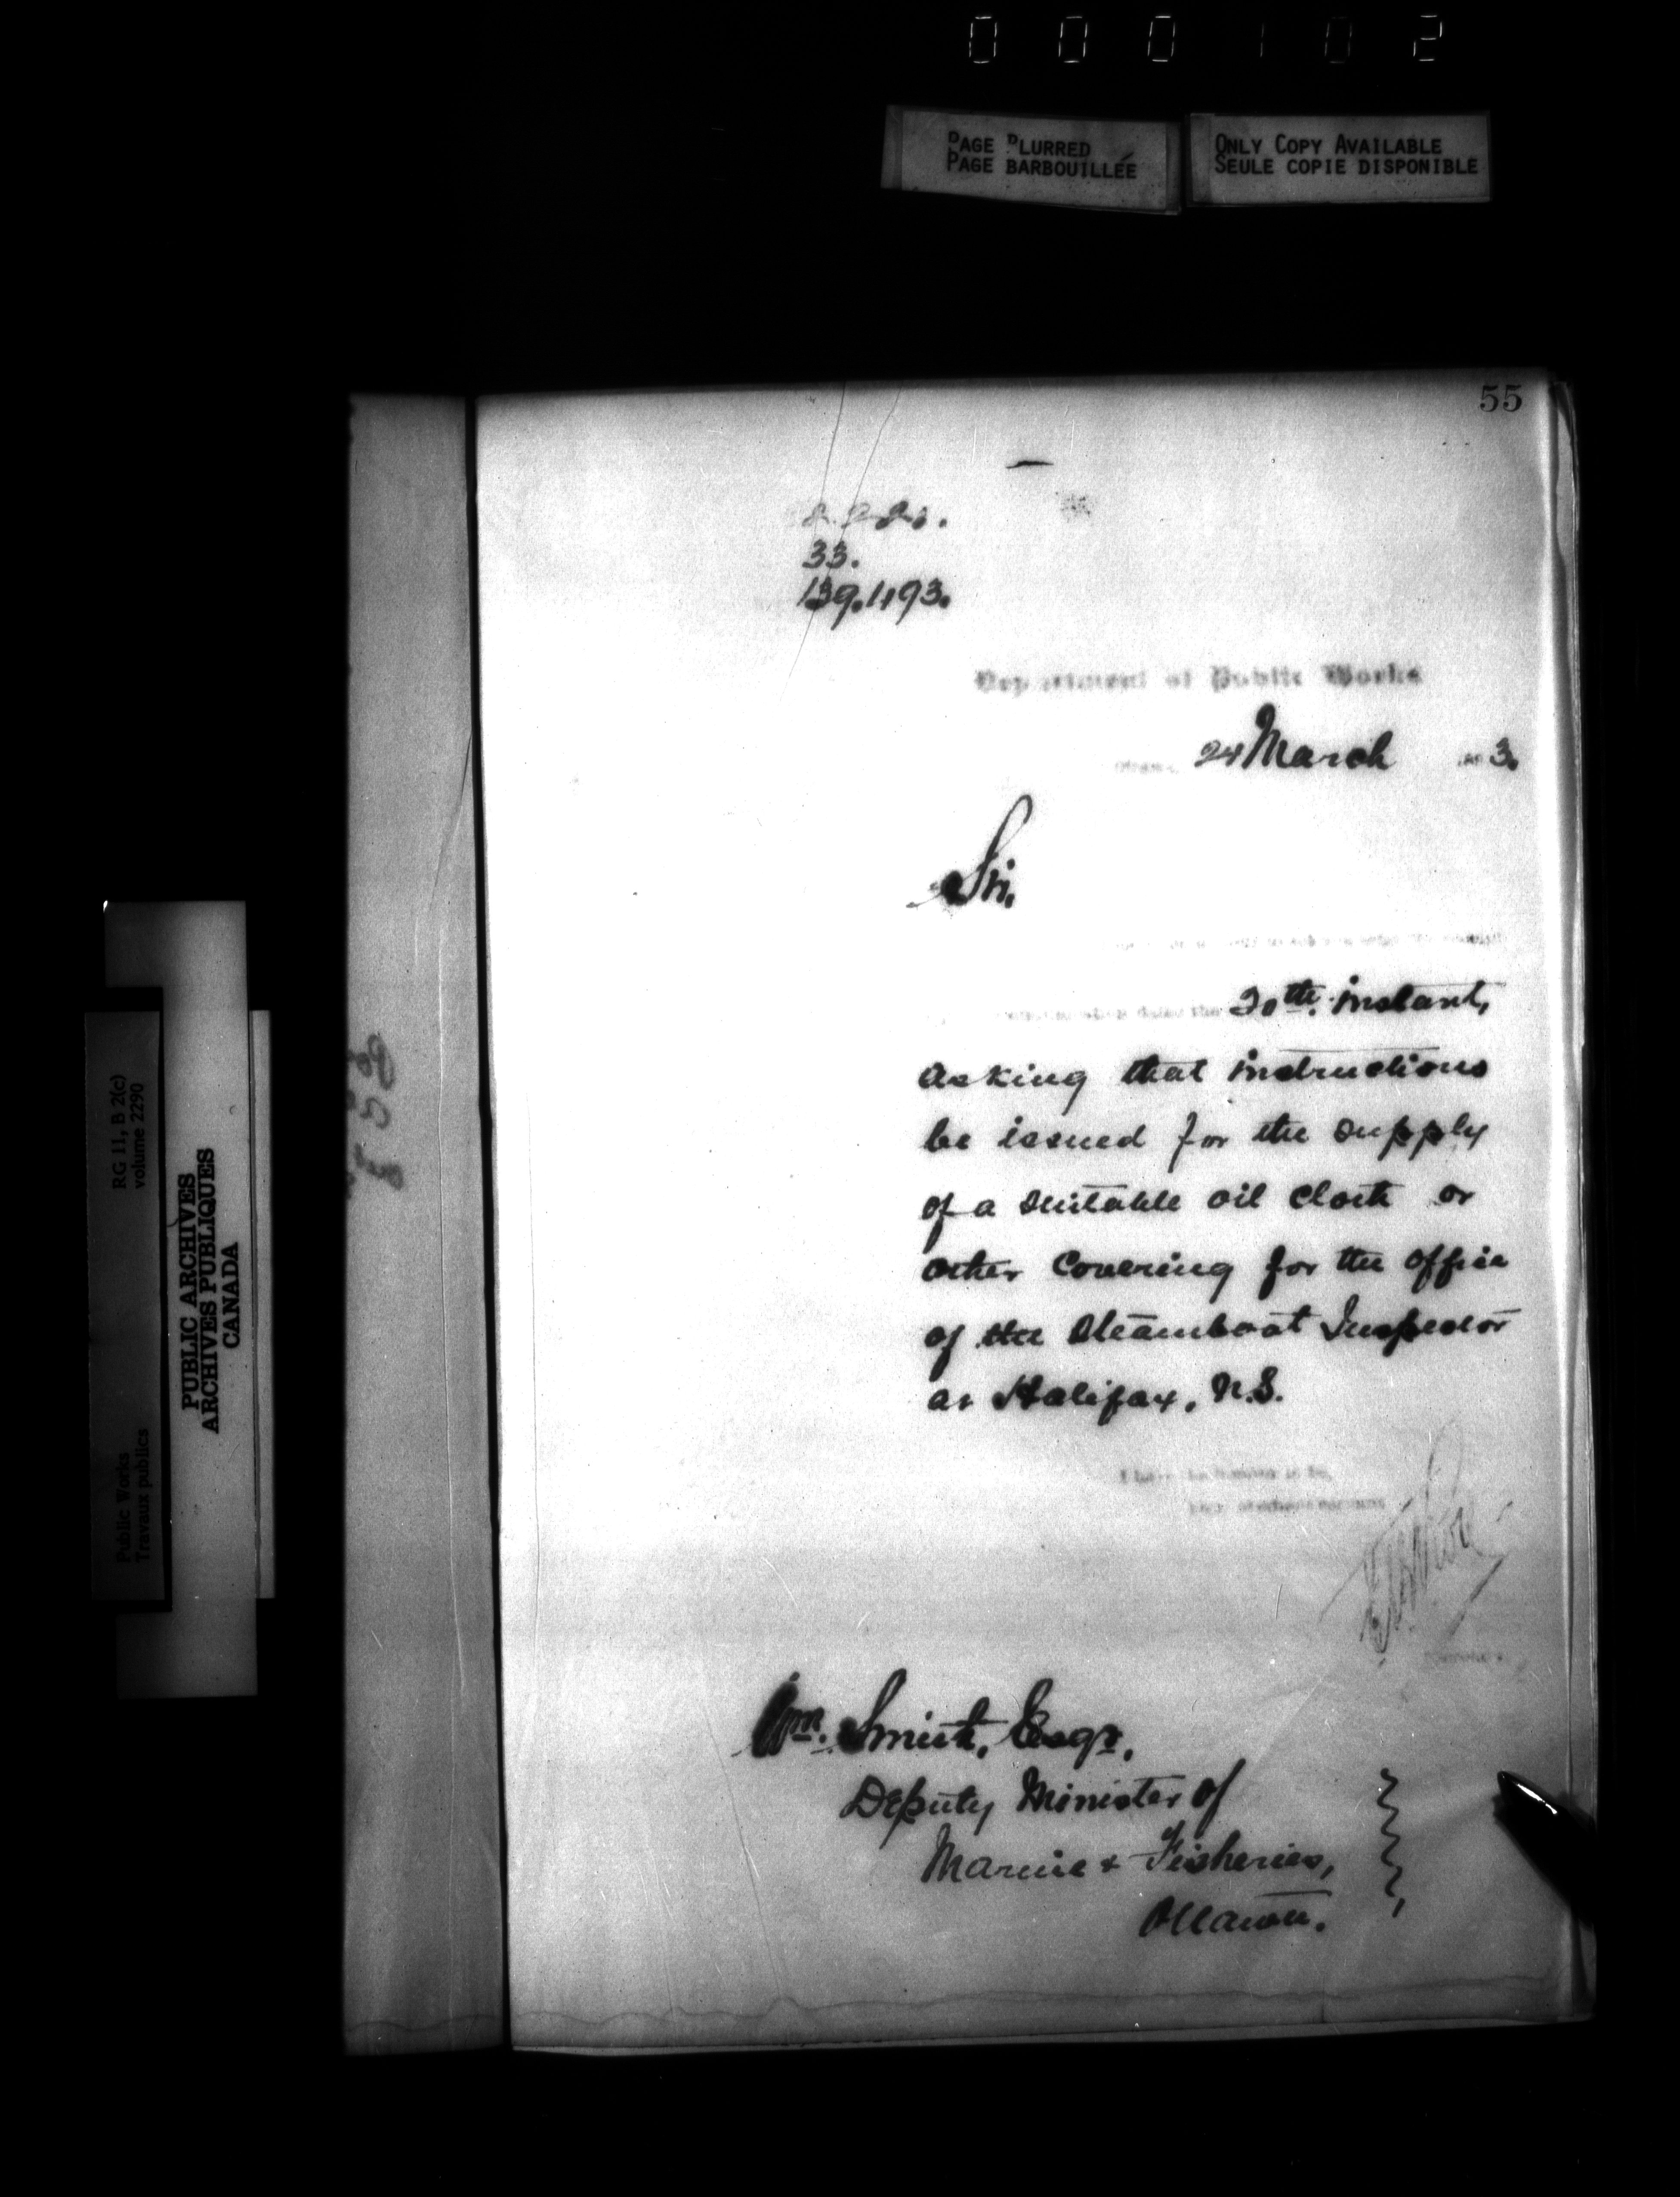 000102
PAGE BLURRED
PAGE BARBOUILLÉE
ONLY COPY AVAILABLE
SEULE COPIE DISPONIBLE
55
33.
139.1193.
Department of Public Works
24 March 3.
Sir,
dated the 20th. instant,
asking that instructions
be issued for the supply
of a suitable oil cloth or
other covering for the office
of the Steamboat Inspector
at Halifax, N.S.
I have the honour to be,
Your obedient servant
Wm. Smith, Esqr.,
Deputy Minister of
Marine & Fisheries,
Ottawa.
RG 11, B 2(c)
volume 2290
Public Works
Travaux publics
PUBLIC ARCHIVES
ARCHIVES PUBLIQUES
CANADA